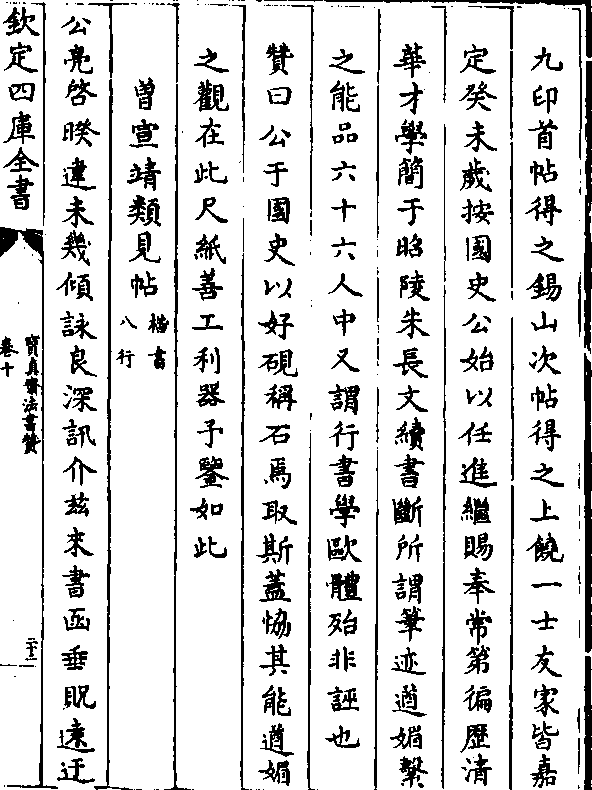 九印首帖得之錫山次帖得之上饒一士友家皆嘉
定癸未歲按國史公始以任進繼賜奉常第徧歷清
華才學簡于昭陵朱長文續書斷所謂筆迹遒媚繫
之能品六十六人中又謂行書學歐體殆非誣也
贊曰公于國史以好硯稱石焉取斯蓋恊其能遒媚
之觀在此尺紙善工利器予鑒如此
曾宣靖類見帖楷書八行
公亮啓暌違未幾傾詠良深訊介茲來書函垂貺逺迂
欽定四庫全書
寳真齋法書贊
卷十
二十二